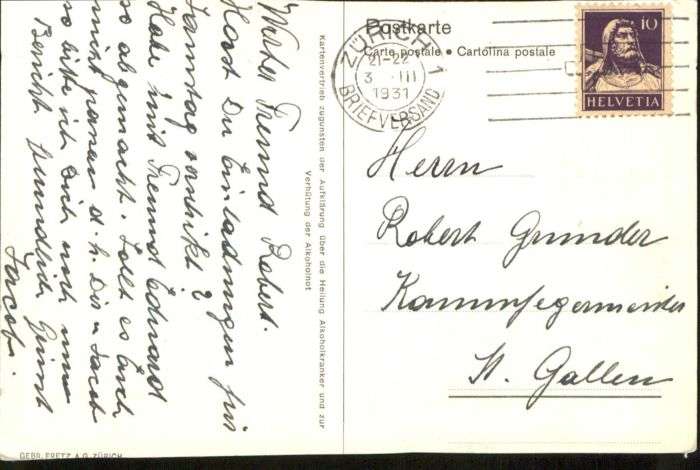 Postkarte
Carte postale • Cartolina postale
ZÜRICH 1
21-22
3 III
1931
BRIEFVERSAND
10
HELVETIA
Herrn
Robert Grunder
Kaminfegermeister
St. Gallen
Kartenvertrieb zugunsten der Aufklärung über die Heilung Alkoholkranker und zur
Verhütung der Alkoholnot
Werter Freund Robert.
Hast Du Einladungen für
Samstag verschikt?
Habe mit Freund Eduard
so abgemacht. Sollt es Euch
nicht passen d. h. Dir u Jacob
so bitte ich Dich noch um
Bericht freundlich Grüsst
Jacob.
GEBR. FRETZ A.G. ZÜRICH